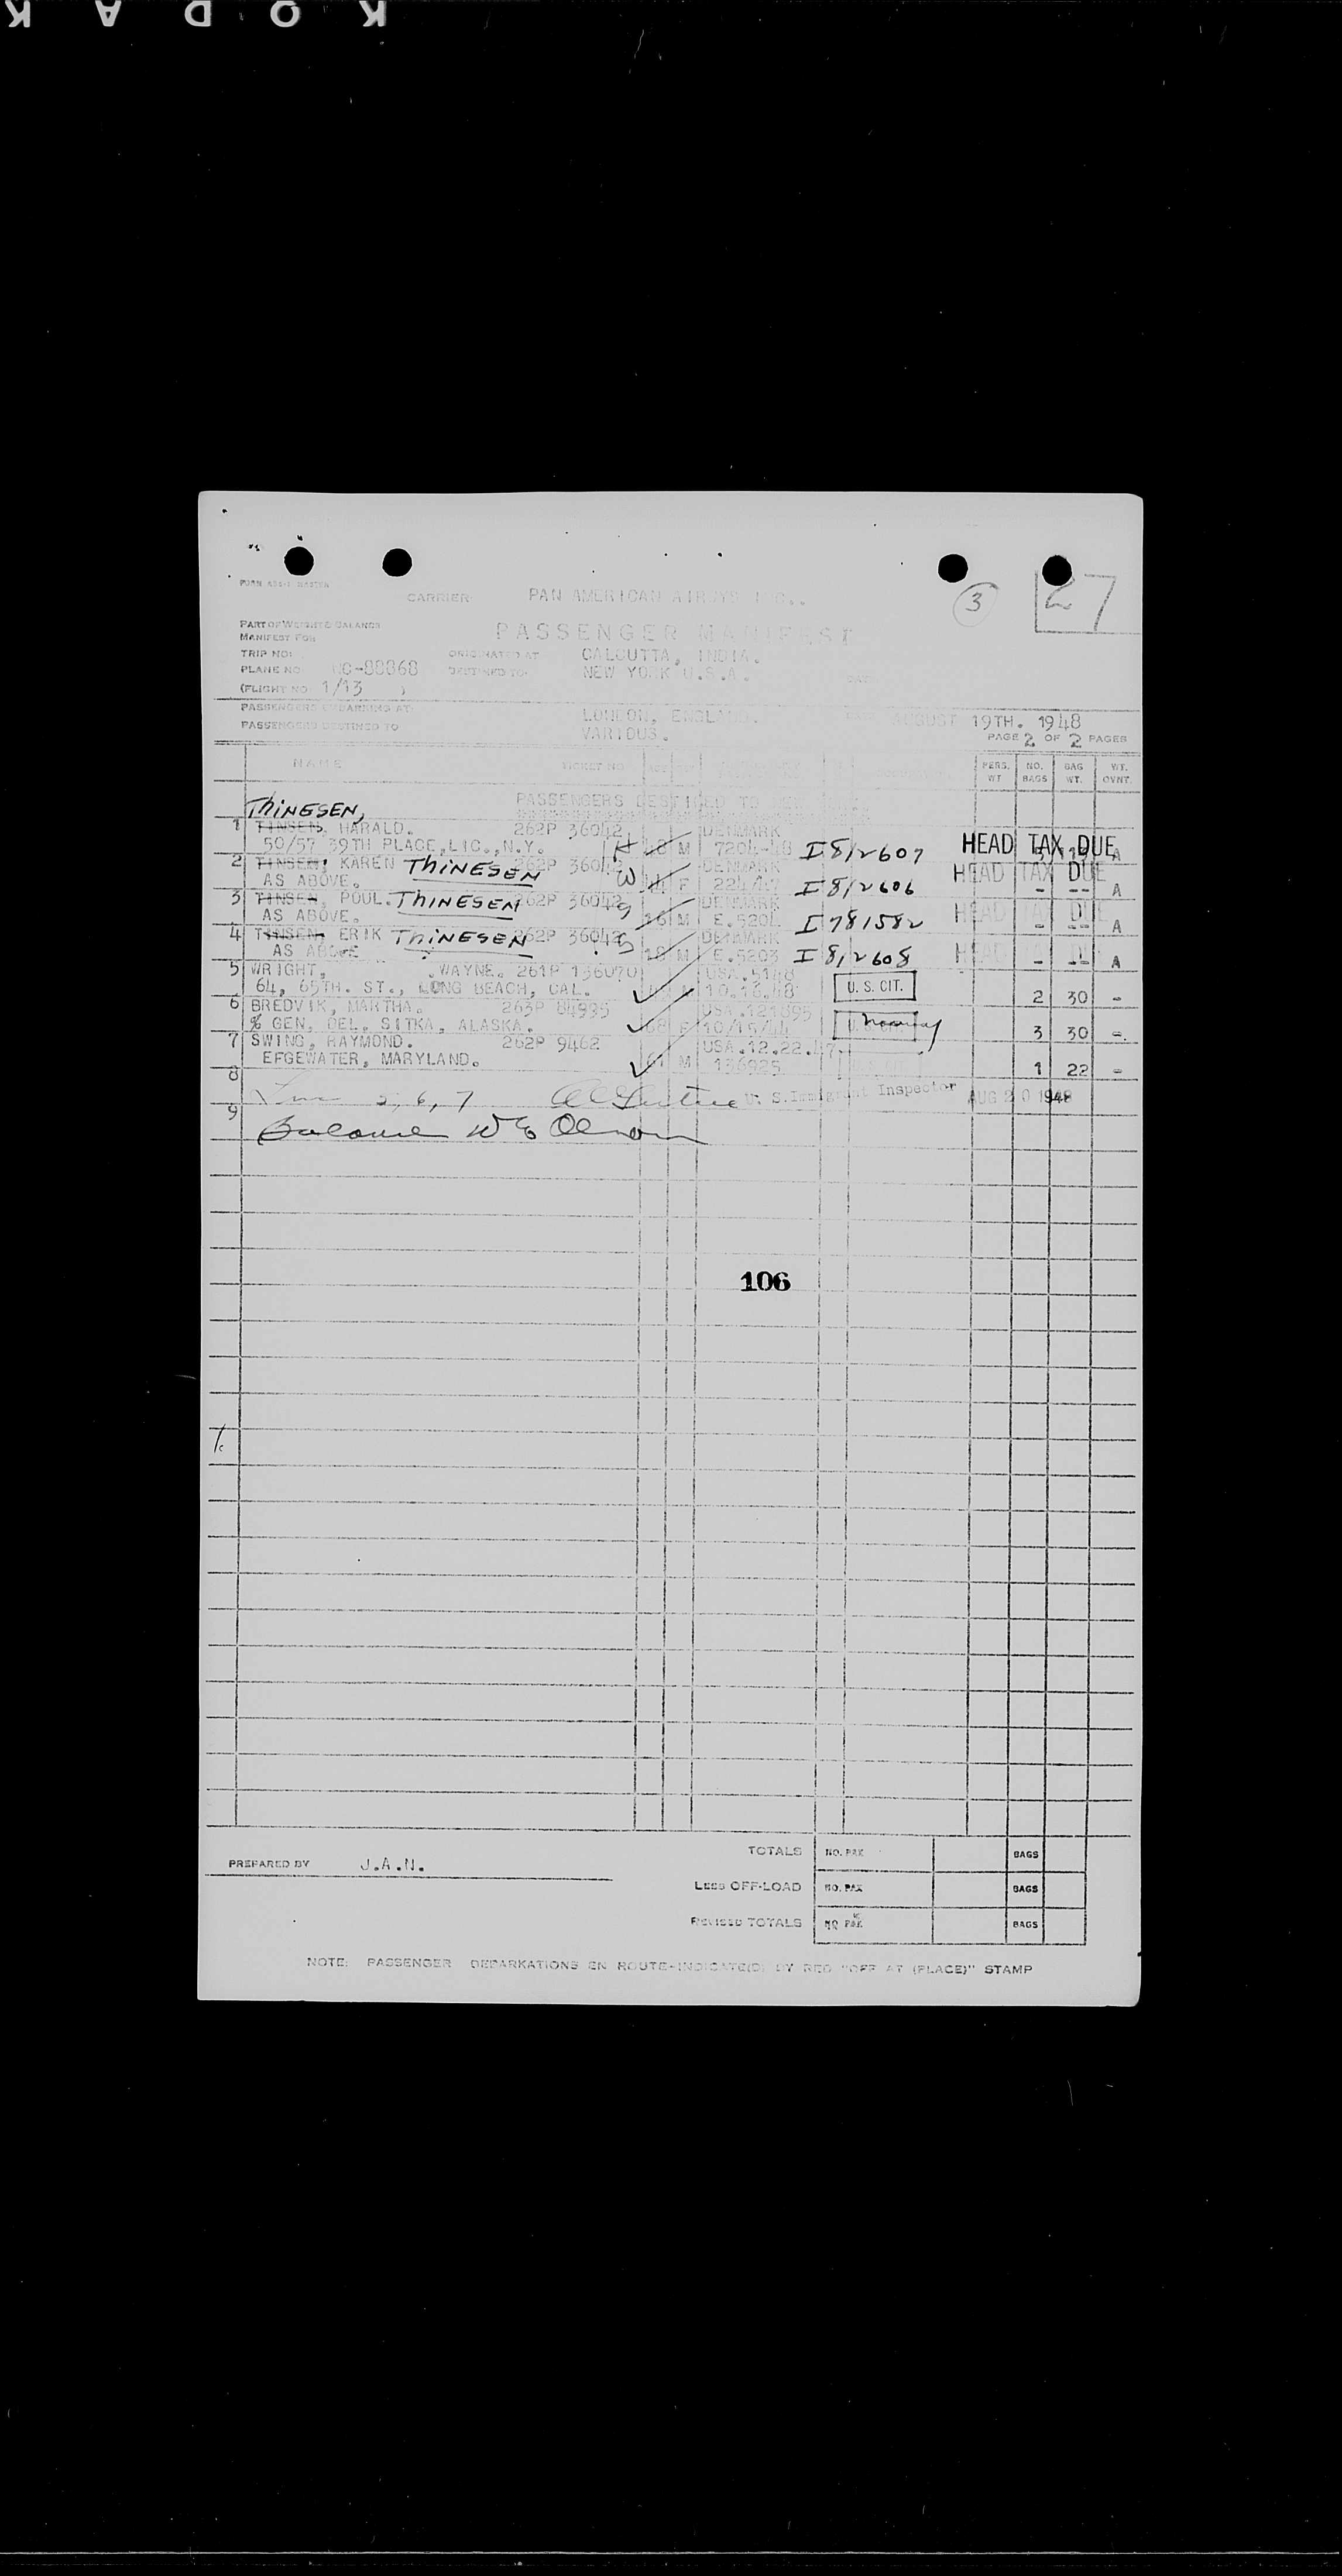 KODAK
3 27
CARRIER PAN AMERICAN AIRWYS INC..
PART OF WEIGHT & BALANCE
MANIFEST FOR
PASSENGER MANIFEST
TRIP NO: ORIGINATED AT CALCUTTA, INDIA.
PLANE NO NC-88868 DESTINED TO: NEW YORK U.S.A. DATE
(FLIGHT NO. 1/13 )
PASSENGERS EMBARKING AT: LONDON, ENGLAND. DATE AUGUST 19TH. 1948
PASSENGERS DESTINED TO VARIOUS.
PAGE 2 OF 2 PAGES
NAME TICKET NO. PERS. WT NO. BAGS BAG WT. WT. OVNT.
PASSENGERS DESTINED TO NEW YORK.
THINESEN,
1 TINSEN, HARALD. 262P 36042 DENMARK
50/57 39TH PLACE, LIC., N.Y. H 48 M 7204-48 I 812607 HEAD TAX DUE A
2 TINSEN, KAREN THINESEN 262P 36042 DENMARK HEAD TAX DUE
AS ABOVE. W F 224/47 I 812606 - -- A
3 TINSEN, POUL. THINESEN 262P 36042 DENMARK HEAD TAX DUE
AS ABOVE. S 16 M E.5204 I 781582 - -- A
4 TINSEN, ERIK THINESEN 262P 36042 DENMARK HEAD TAX DUE
AS ABOVE S M E.5203 I 812608 - -- A
5 WRIGHT, .WAYNE. 261P 136070 USA.5148
64, 65TH. ST., LONG BEACH, CAL. M 10.16.48 U. S. CIT. 2 30 -
6 BREDVIK, MARTHA. 263P 84995 USA.121895
% GEN. DEL. SITKA, ALASKA. 68 F 10/15/44 3 30 -.
7 SWING, RAYMOND. 262P 9462 USA.12.22.47.
EFGEWATER, MARYLAND. 61 M 136925 1 22 -
8 5, 6, 7 U. S. Immigrant Inspector AUG 20 1948
9
106
PREPARED BY J.A.N.
TOTALS NO. PAX BAGS
LESS OFF-LOAD NO. PAX BAGS
REVISED TOTALS NO PAX BAGS
NOTE: PASSENGER DEBARKATIONS EN ROUTE-INDICATE(D) BY RED "OFF AT (PLACE)" STAMP